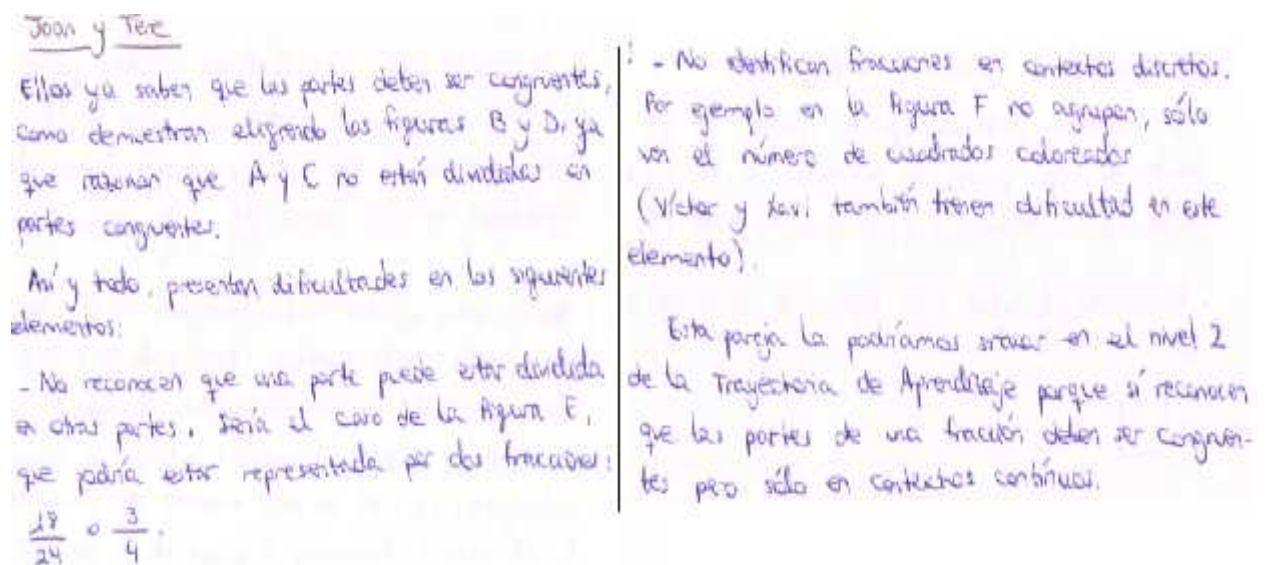 Joan y Tere
Ellos ya saben que las partes deben ser congruentes,
como demuestran eligiendo las figuras B y D, ya
que razonan que A y C no están divididas en
partes congruentes.
Así y todo, presentan dificultades en los siguientes
elementos:
- No reconocen que una parte puede estar dividida
en otras partes. Sería el caso de la figura E,
que podría estar representada por dos fracciones:
18/24 o 3/4.
- No identifican fracciones en contextos discretos.
Por ejemplo en la figura F no agrupan, sólo
ven el número de cuadrados coloreados
(Víctor y Xavi también tienen dificultad en este
elemento).
Esta pareja la podríamos situar en el nivel 2
de la Trayectoria de Aprendizaje porque sí reconocen
que las partes de una fracción deben ser congruen-
tes pero sólo en contextos contínuos.